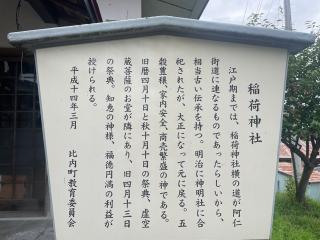 稲荷神社
江戸期までは、稲荷神社横の道が阿仁
街道に連なるものであったらしいから、
相当古い伝承を持つ。明治に神明社に合
祀されたが、大正になって元に戻る。五
穀豊穣、家内安全、商売繁盛の神である。
旧暦四月十日と秋十月十日の祭典、虚空
蔵菩薩のお堂が隣にあり、旧四月十三日
の祭典。知恵の神様、福徳円満の利益が
授けられる。
平成十四年三月
比内町教育委員会